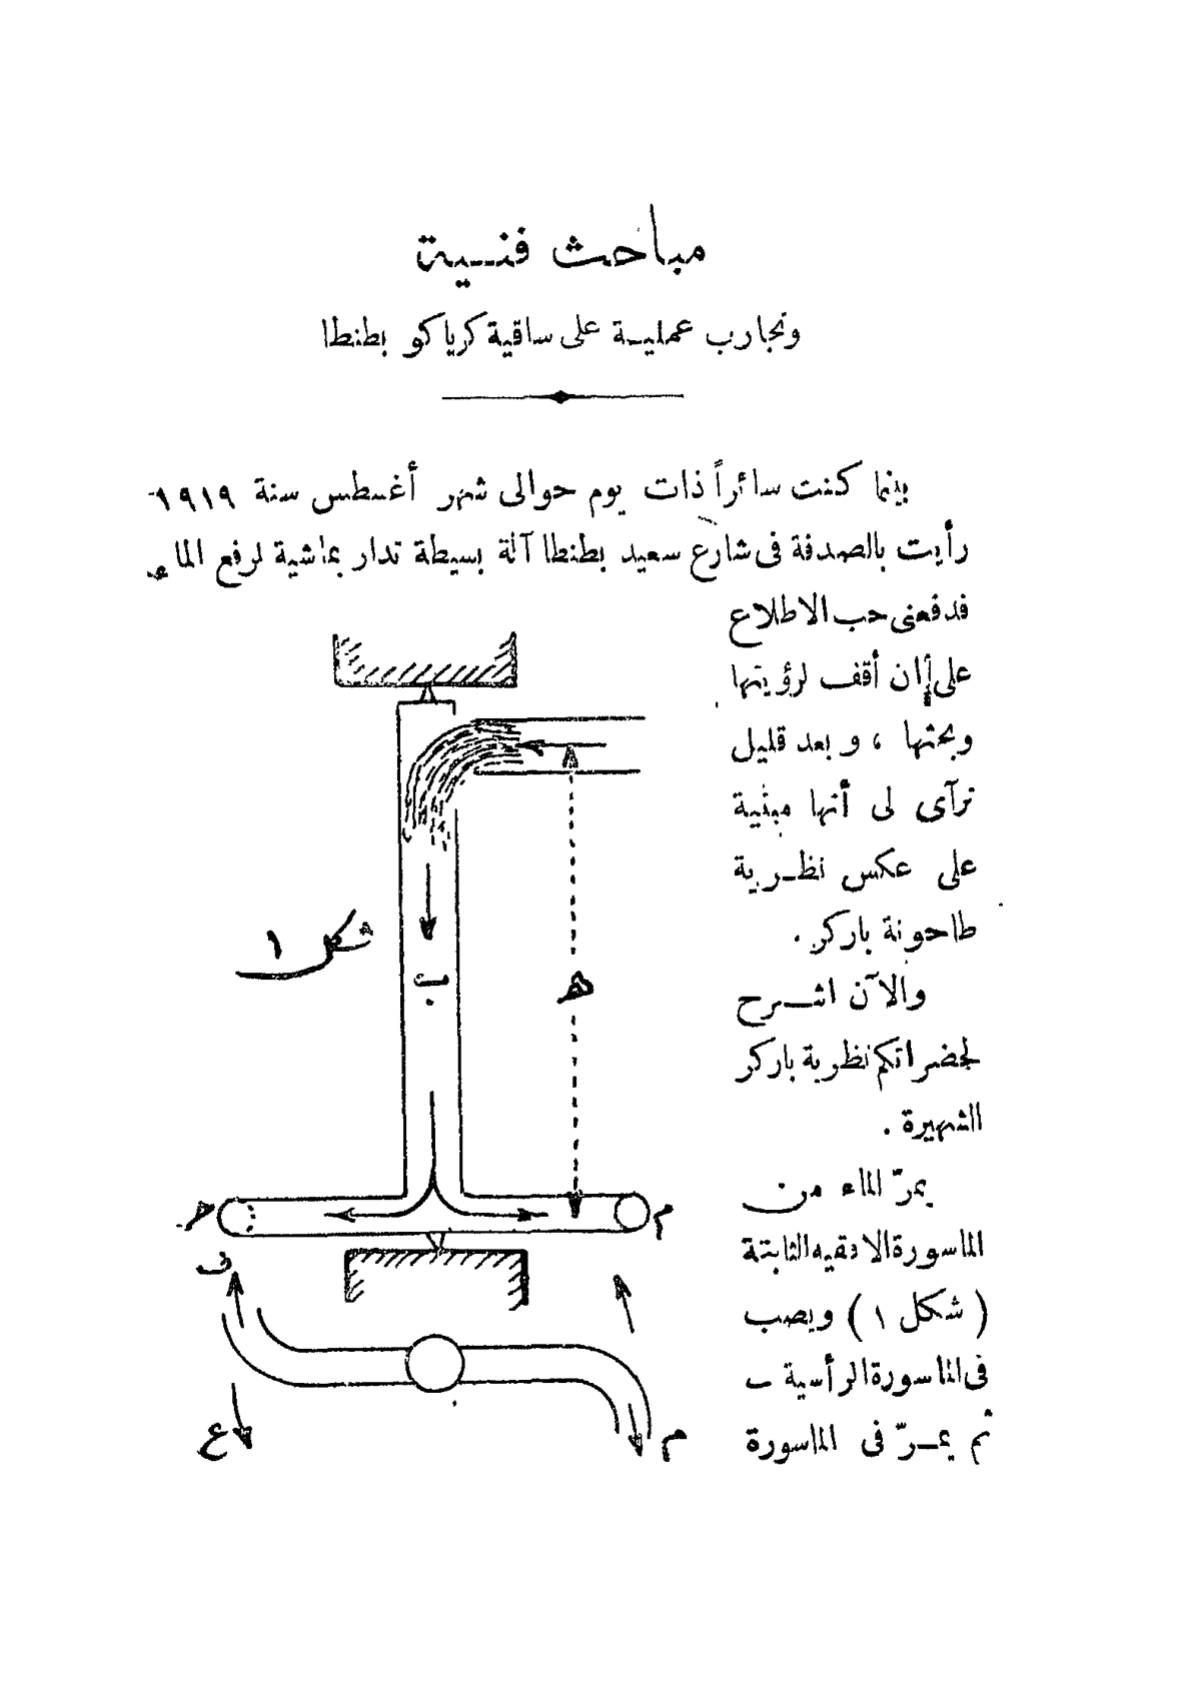 مباحث فنـية
وتجارب عملية على ساقية كرياكو بطنطا
بينما كنت سائراً ذات يوم حوالى شهر أغسطس سنة ١٩١٩
رأيت بالصدفة فى شارع سعيد بطنطا آلة بسيطة تدار بماشية لرفع الماء
فدفعنى حب الاطلاع
على أن أقف لرؤيتها
وبحثها ، و بعد قليل
ترآى لى أنها مبنية
على عكس نظرية
طاحونة باركر .
والآن اشرح
لحضراتكم نظرية باركر
الشهيرة .
يمرّ الماء من
الماسورة الافقيه الثابتة
( شكل ١ ) ويصب
فى الماسورة الرأسية ب
ثم يمرّ فى الماسورة
شكل ١
ب
هـ
م
ف
ع
م